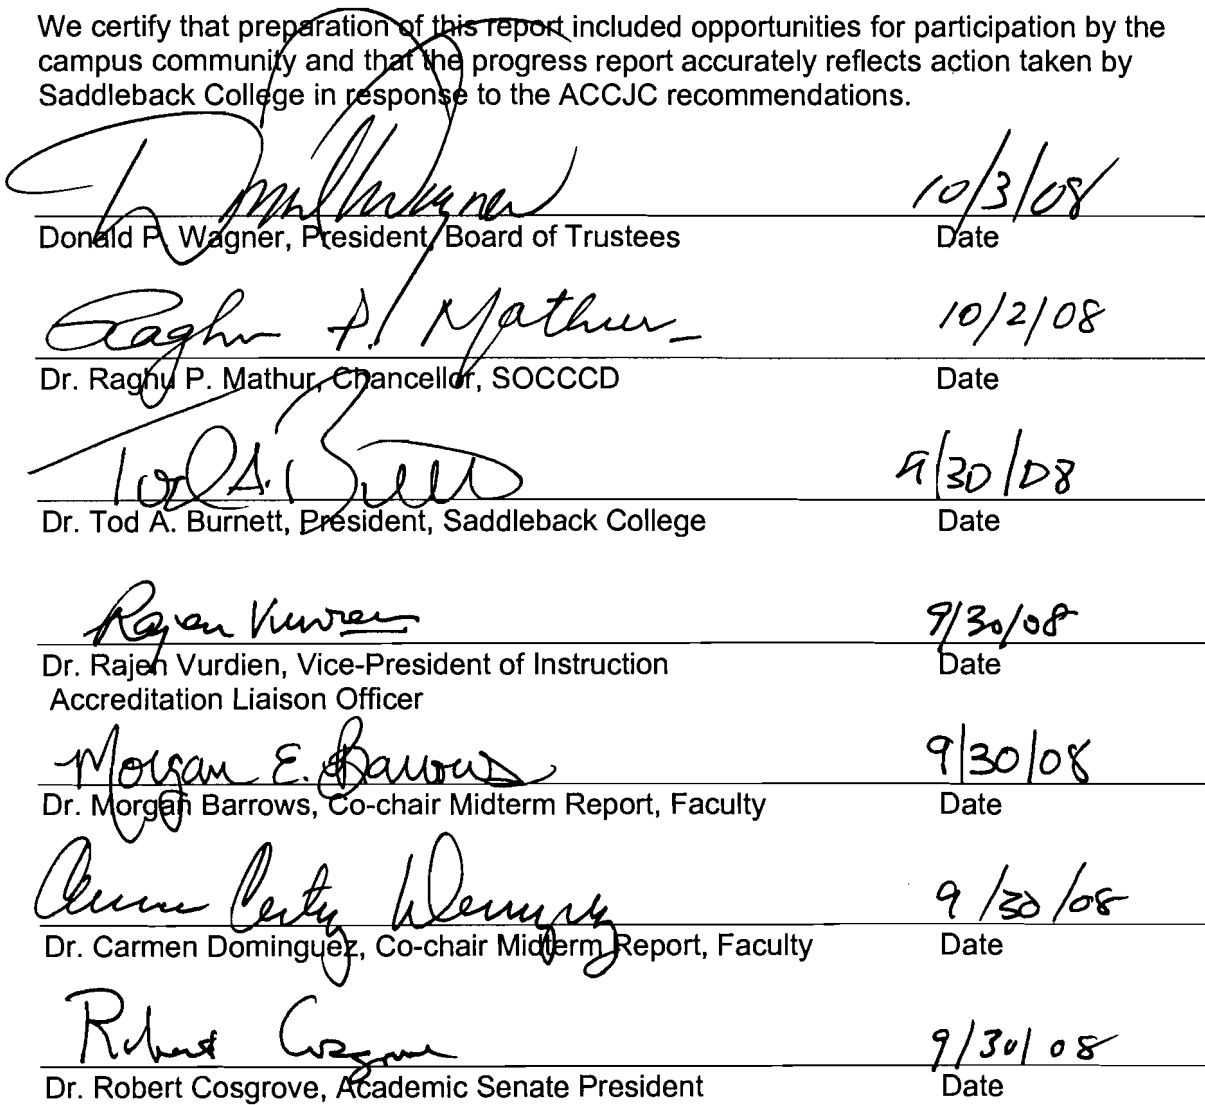 We certify that preparation of this report included opportunities for participation by the
campus community and that the progress report accurately reflects action taken by
Saddleback College in response to the ACCJC recommendations.
Donald P. Wagner 10/3/08
Donald P. Wagner, President, Board of Trustees Date
Raghu P. Mathur 10/2/08
Dr. Raghu P. Mathur, Chancellor, SOCCCD Date
Tod A. Burnett 9/30/08
Dr. Tod A. Burnett, President, Saddleback College Date
Rajen Vurdien 9/30/08
Dr. Rajen Vurdien, Vice-President of Instruction Date
Accreditation Liaison Officer
Morgan E. Barrows 9/30/08
Dr. Morgan Barrows, Co-chair Midterm Report, Faculty Date
9/30/08
Dr. Carmen Dominguez, Co-chair Midterm Report, Faculty Date
Robert Cosgrove 9/30/08
Dr. Robert Cosgrove, Academic Senate President Date